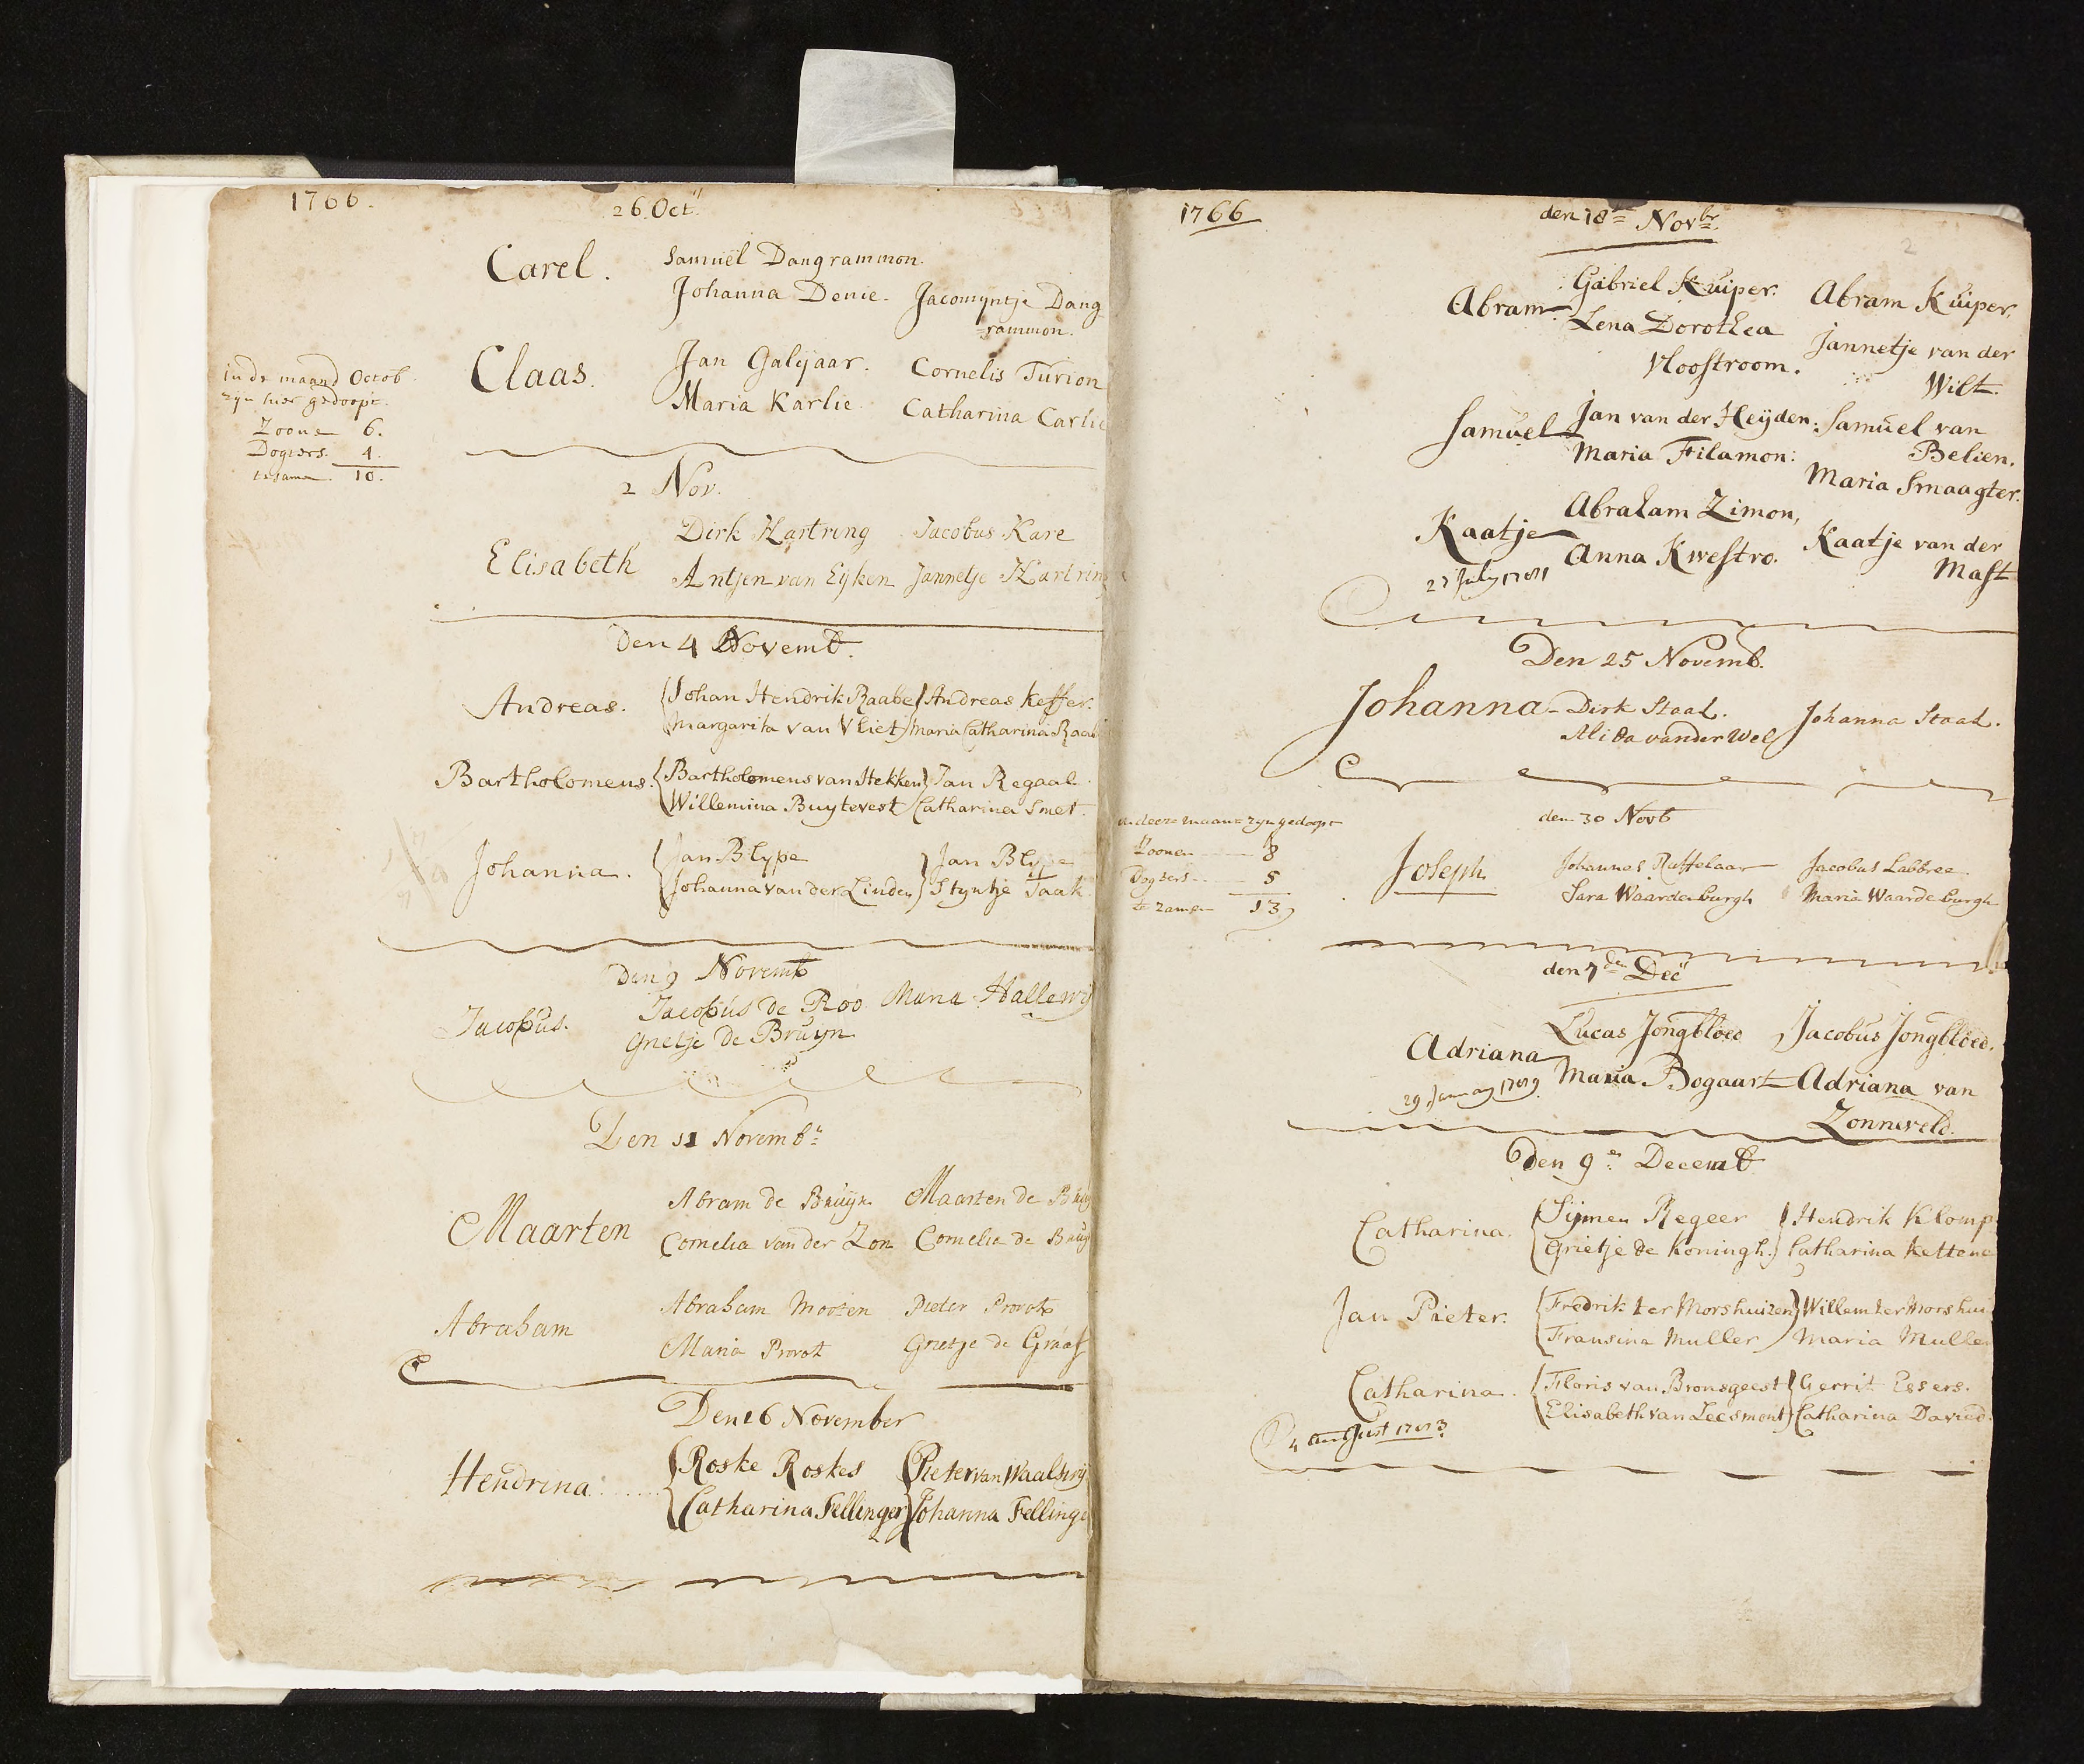 1766.
26. Oct.
Carel.
Samuel Dangrammon.
Johanna Denie. Jacomyntje Dang
=rammon.
Claas.
Jan Galijaar. Cornelis Turion
Maria Karlie. Catharina Carlie
in de maand Octob
zijn hier gedoopt.
Zoons 6.
Dogters. 4.
tesame. 10.
2 Nov.
Elisabeth
Dirk Hartring Jacobus Kare
Antjen van Eyken Jannetje Hartring
Den 4 Novemb.
Andreas.
Johan Hendrik Raabe Andreas Keffer.
Margarita van Vliet Maria Catharina Raab
Bartholomeus.
Bartholomeus van Hekken Jan Regaal.
Willemina Buytevest Catharina Smet.
Johanna.
Jan Blype Jan Blype
Johanna van der Linden Styntje Taak
Den 9 Novemb
Jacobus.
Jacobus de Roo Maria Hallewy
Grietje de Bruyn
Den 11 Novemb.
Maarten
Abram de Bruijn Maarten de Bruij
Cornelia van der Zon Cornelia de Bruij
Abraham
Abraham Mooten Pieter Provot
Maria Provot Grietje de Graaf
Den 16 November
Hendrina
Roske Roskes Pieter van Waalwij
Catharina Fellinger Johanna Fellinge
1766
den 18 Novbr.
2
Abram
Gabriel Kuiper. Abram Kuiper.
Lena Dorothea
Vloostroom.
Jannetje van der
Wilt.
Samuel
Jan van der Heijden: Samuel van
Belien.
Maria Filamon: Maria Smaagter.
Kaatje
Abraham Zimon,
Anna Kwestro. Kaatje van der
Mast
27 July
Den 25 Novemb.
Johanna
Dirk Staal. Johanna Staal.
Alida van der Wel
den 30 Novb
in deeze maand zijn gedoopt
Zoonen 8
Dogters 5
te zamen 13
Joseph
Johannes Ruffelaar Jacobus Labbree
Sara Waardenburgh Maria Waardeburgh
den 7de Dec
Adriana
Lucas Jongbloed, Jacobus Jongbloed.
Maria Bogaart Adriana van
Zonneveld.
29 January
Den 9e Decemb
Catharina.
Sijmen Regeer Hendrik Klomp
Grietje de Koningh. Catharina Kettene
Jan Pieter.
Fredrik ter Morshuizen Willem ter Morshui
Fransina Muller Maria Muller
Catharina.
Floris van Bronsgeest Gerrit Essers.
Elisabeth van Leesment Catharina David.
4 august